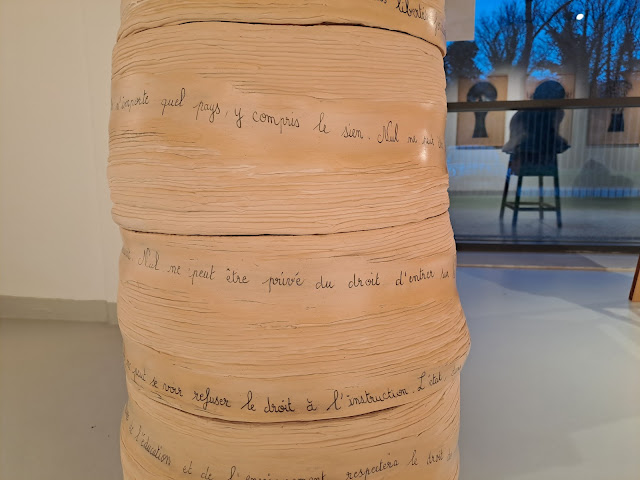 libertés
n'importe quel pays, y compris le sien. Nul ne peut
Nul ne peut être privé du droit d'entrer sur
ne peut se voir refuser le droit à l'instruction. L'état
de l'éducation et de l'enseignement respectera le droit de